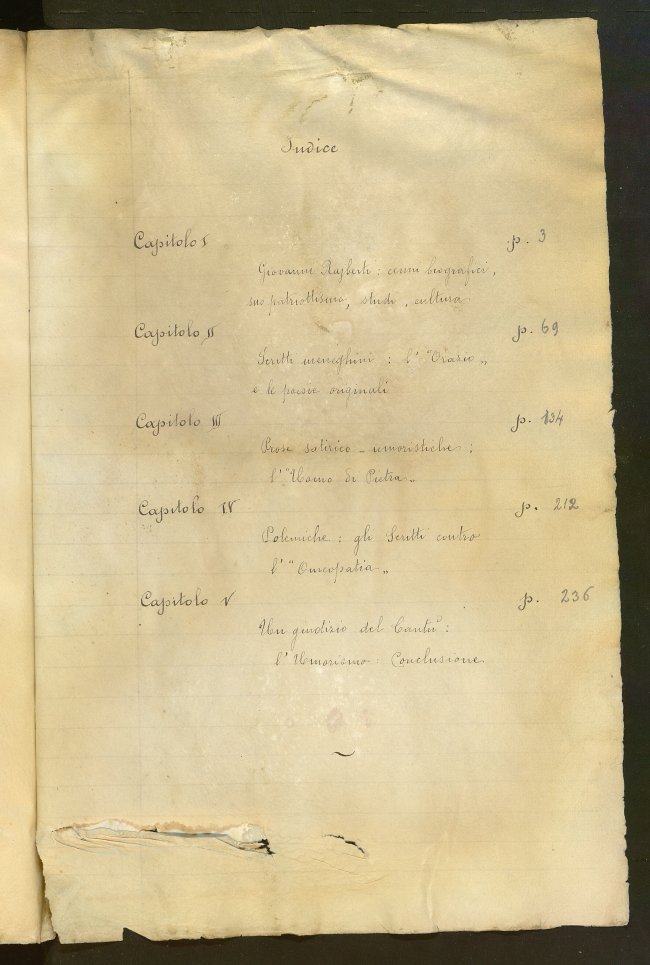 Indice
Capitolo I p. 3
Giovanni Rajberti : cenni biografici,
suo patriottismo, studi, cultura
Capitolo II p. 69
Scritti meneghini : l' "Orazio„
e le poesie originali
Capitolo III p. 134
Prose satirico - umoristiche :
l' "Uomo di Pietra„
Capitolo IV p. 212
Polemiche : gli Scritti contro
l' "Omeopatia„
Capitolo V p. 236
Un giudizio del Cantù :
l' Umorismo : Conclusione